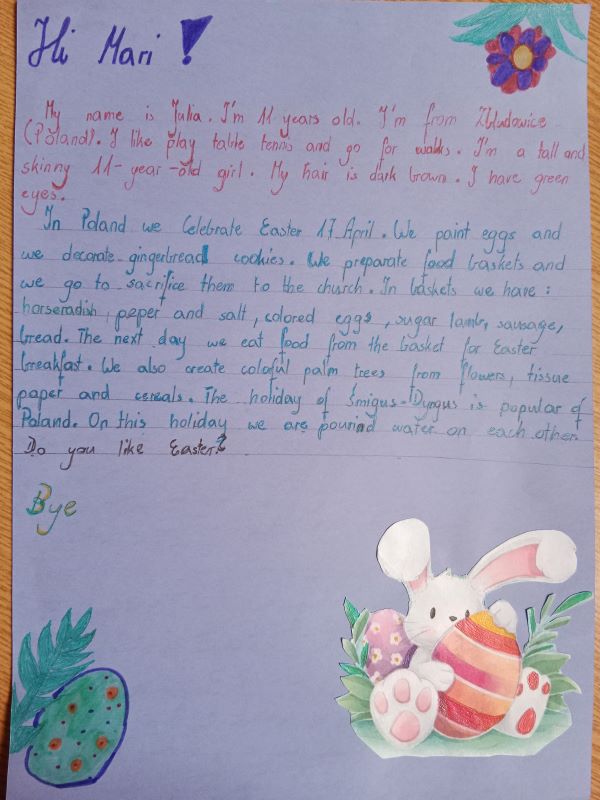 Hi Mari!
My name is Julia. I'm 11 years old. I'm from Zbludowice
(Poland). I like play table tennis and go for walks. I'm a tall and
skinny 11-year-old girl. My hair is dark brown. I have green
eyes.
In Poland we celebrate Easter 17 April. We paint eggs and
we decorate gingerbread cookies. We preparate food baskets and
we go to sacrifice them to the church. In baskets we have:
horseradish, peper and salt, colored eggs, sugar lamb, sausage,
bread. The next day we eat food from the basket for Easter
breakfast. We also create coloful palm trees from flowers, tissue
paper and cereals. The holiday of Śmigus-Dyngus is popular of
Poland. On this holiday we are pournd water on each other.
Do you like Easter?
Bye